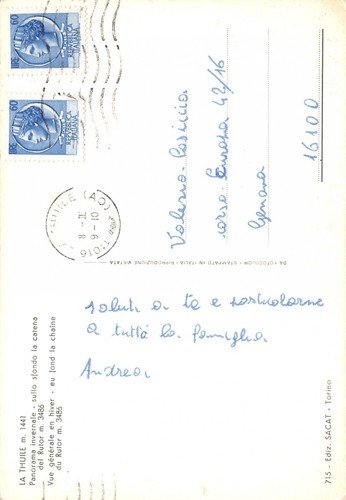 saluti a te e particolarme
a tutta la famiglia
Andrea
Valerio
corso Europa 42/16
Genova
16100
LA THUILE m. 1441
Panorama invernale - sullo sfondo la catena
del Rutor m. 3486
Vue générale en hiver - eu fond la chaîne
du Rutor m. 3486
DA FOTOCOLOR - STAMPATO IN ITALIA - RIPRODUZIONE VIETATA
715 - Ediz. SACAT - Torino
THUILE (AO)
8 - II
9 - 10
11016